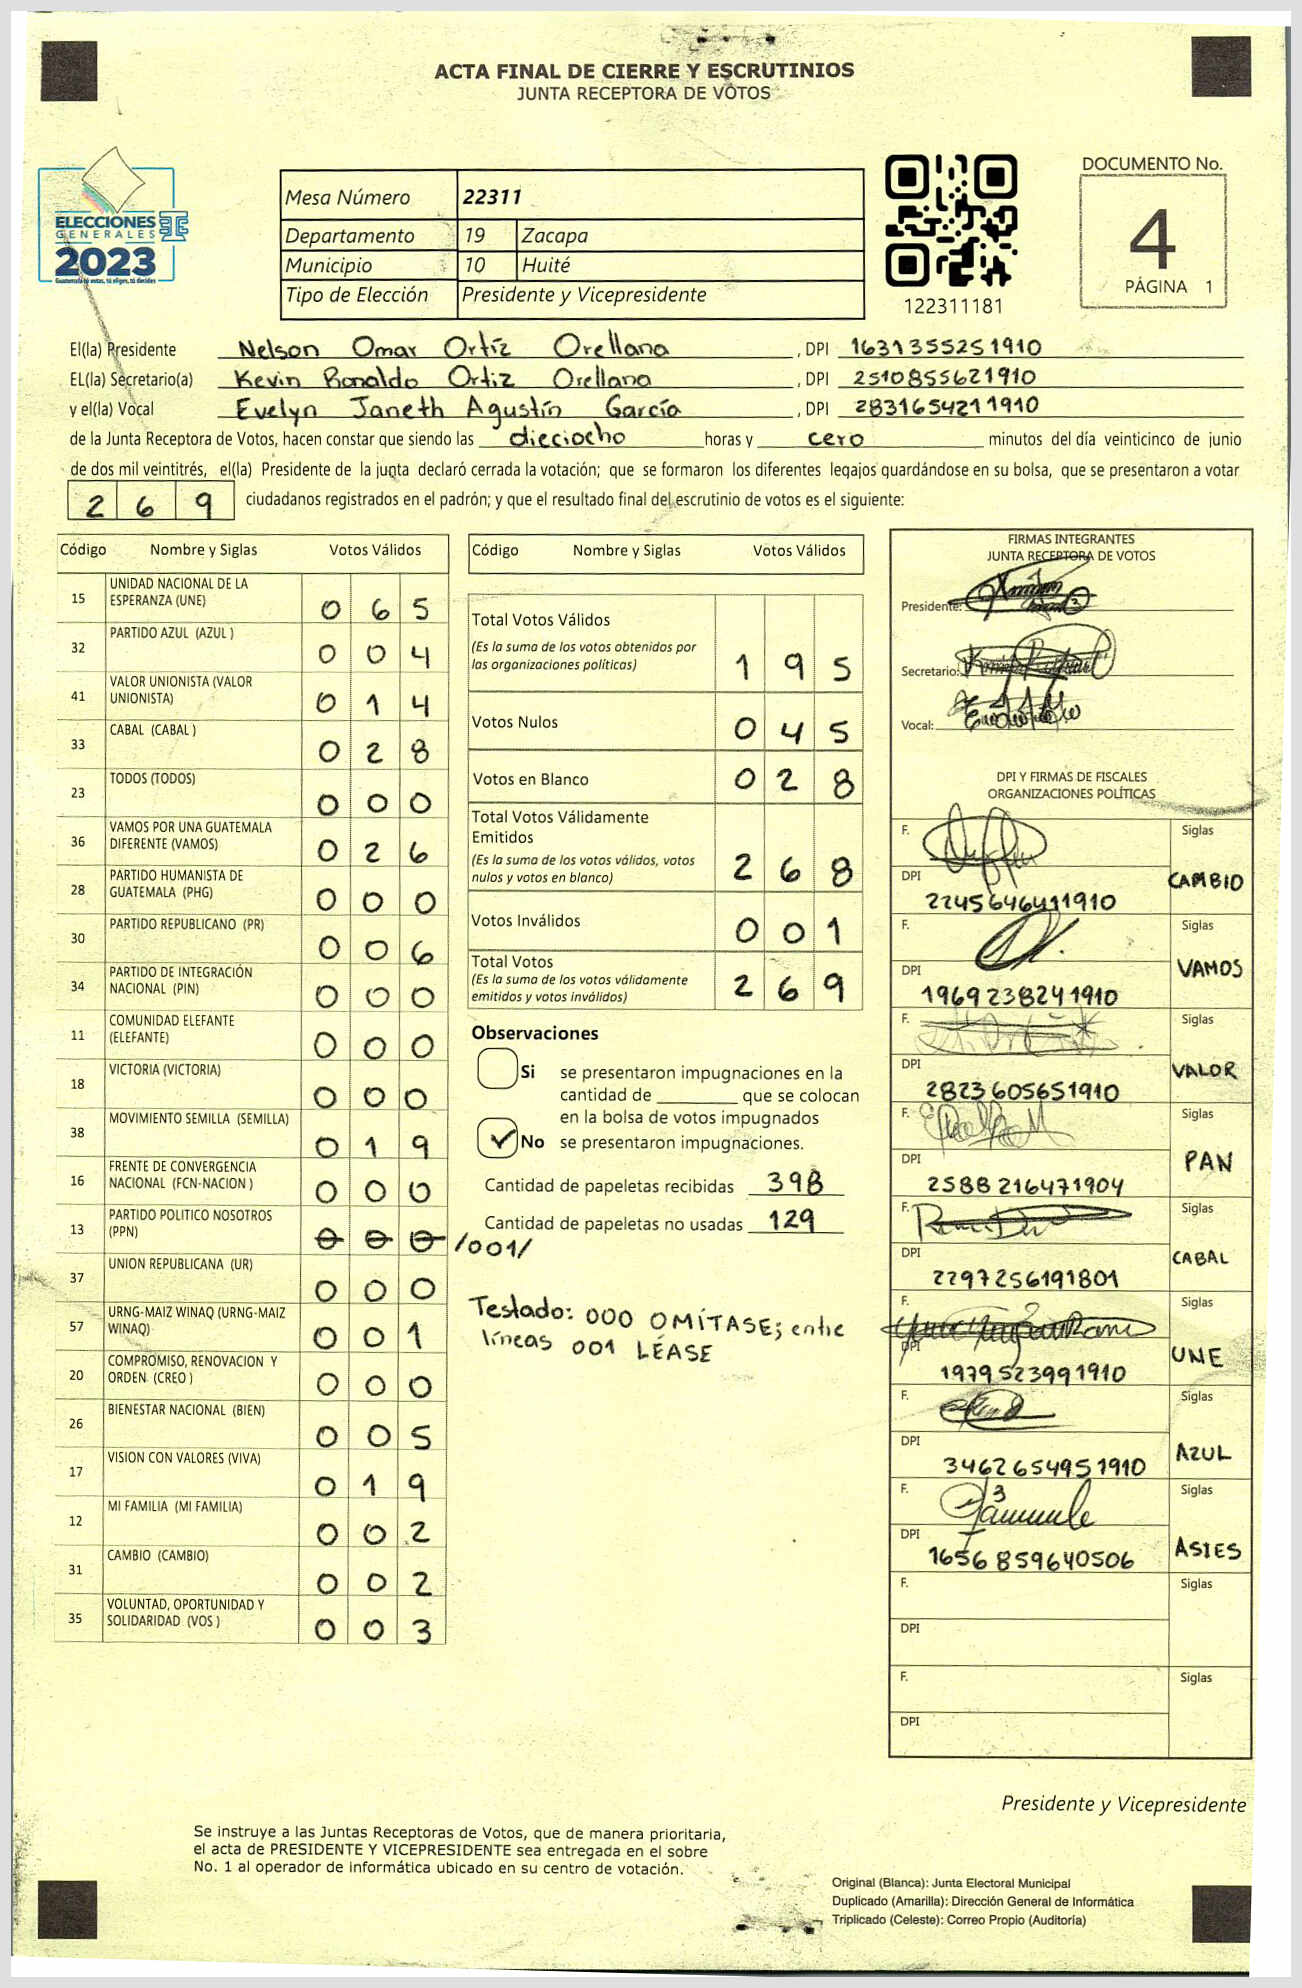 ACTA FINAL DE CIERRE Y ESCRUTINIOS
JUNTA RECEPTORA DE VOTOS
ELECCIONES
GENERALES
2023
Guatemala tú votas, tú eliges, tú decides
Mesa Número 22311
Departamento 19 Zacapa
Municipio 10 Huité
Tipo de Elección Presidente y Vicepresidente
122311181
DOCUMENTO No.
4
PÁGINA 1
El(la) Presidente Nelson Omar Ortíz Orellana , DPI 1631355251910
EL(la) Secretario(a) Kevin Ronaldo Ortiz Orellana , DPI 2510855621910
y el(la) Vocal Evelyn Janeth Agustín García , DPI 2831654211910
de la Junta Receptora de Votos, hacen constar que siendo las dieciocho horas y cero minutos del día veinticinco de junio
de dos mil veintitrés, el(la) Presidente de la junta declaró cerrada la votación; que se formaron los diferentes legajos guardándose en su bolsa, que se presentaron a votar
2 6 9 ciudadanos registrados en el padrón; y que el resultado final del escrutinio de votos es el siguiente:
Código Nombre y Siglas Votos Válidos
15 UNIDAD NACIONAL DE LA ESPERANZA (UNE) 0 6 5
32 PARTIDO AZUL (AZUL ) 0 0 4
41 VALOR UNIONISTA (VALOR UNIONISTA) 0 1 4
33 CABAL (CABAL ) 0 2 8
23 TODOS (TODOS) 0 0 0
36 VAMOS POR UNA GUATEMALA DIFERENTE (VAMOS) 0 2 6
28 PARTIDO HUMANISTA DE GUATEMALA (PHG) 0 0 0
30 PARTIDO REPUBLICANO (PR) 0 0 6
34 PARTIDO DE INTEGRACIÓN NACIONAL (PIN) 0 0 0
11 COMUNIDAD ELEFANTE (ELEFANTE) 0 0 0
18 VICTORIA (VICTORIA) 0 0 0
38 MOVIMIENTO SEMILLA (SEMILLA) 0 1 9
16 FRENTE DE CONVERGENCIA NACIONAL (FCN-NACION ) 0 0 0
13 PARTIDO POLITICO NOSOTROS (PPN) 0 0 0 /001/
37 UNION REPUBLICANA (UR) 0 0 0
57 URNG-MAIZ WINAQ (URNG-MAIZ WINAQ) 0 0 1
20 COMPROMISO, RENOVACION Y ORDEN (CREO ) 0 0 0
26 BIENESTAR NACIONAL (BIEN) 0 0 5
17 VISION CON VALORES (VIVA) 0 1 9
12 MI FAMILIA (MI FAMILIA) 0 0 2
31 CAMBIO (CAMBIO) 0 0 2
35 VOLUNTAD, OPORTUNIDAD Y SOLIDARIDAD (VOS ) 0 0 3
Código Nombre y Siglas Votos Válidos
Total Votos Válidos
(Es la suma de los votos obtenidos por
las organizaciones políticas) 1 9 5
Votos Nulos 0 4 5
Votos en Blanco 0 2 8
Total Votos Válidamente
Emitidos
(Es la suma de los votos válidos, votos
nulos y votos en blanco) 2 6 8
Votos Inválidos 0 0 1
Total Votos
(Es la suma de los votos válidamente
emitidos y votos inválidos) 2 6 9
Observaciones
Si se presentaron impugnaciones en la
cantidad de ________ que se colocan
en la bolsa de votos impugnados
No se presentaron impugnaciones.
Cantidad de papeletas recibidas 398
Cantidad de papeletas no usadas 129
Testado: 000 OMÍTASE; entre
líneas 001 LÉASE
FIRMAS INTEGRANTES
JUNTA RECEPTORA DE VOTOS
Presidente:
Secretario:
Vocal:
DPI Y FIRMAS DE FISCALES
ORGANIZACIONES POLÍTICAS
F. Siglas
DPI 2245646411910 CAMBIO
F. Siglas
DPI 1969238241910 VAMOS
F. Siglas
DPI 2823605651910 VALOR
F. Siglas
DPI 2588216471904 PAN
F. Siglas
DPI 2297256191801 CABAL
F. Siglas
DPI 1979523991910 UNE
F. Siglas
DPI 3462654951910 AZUL
F. Siglas
DPI 1656859640506 ASIES
F. Siglas
DPI
F. Siglas
DPI
Presidente y Vicepresidente
Se instruye a las Juntas Receptoras de Votos, que de manera prioritaria,
el acta de PRESIDENTE Y VICEPRESIDENTE sea entregada en el sobre
No. 1 al operador de informática ubicado en su centro de votación.
Original (Blanca): Junta Electoral Municipal
Duplicado (Amarilla): Dirección General de Informática
Triplicado (Celeste): Correo Propio (Auditoría)